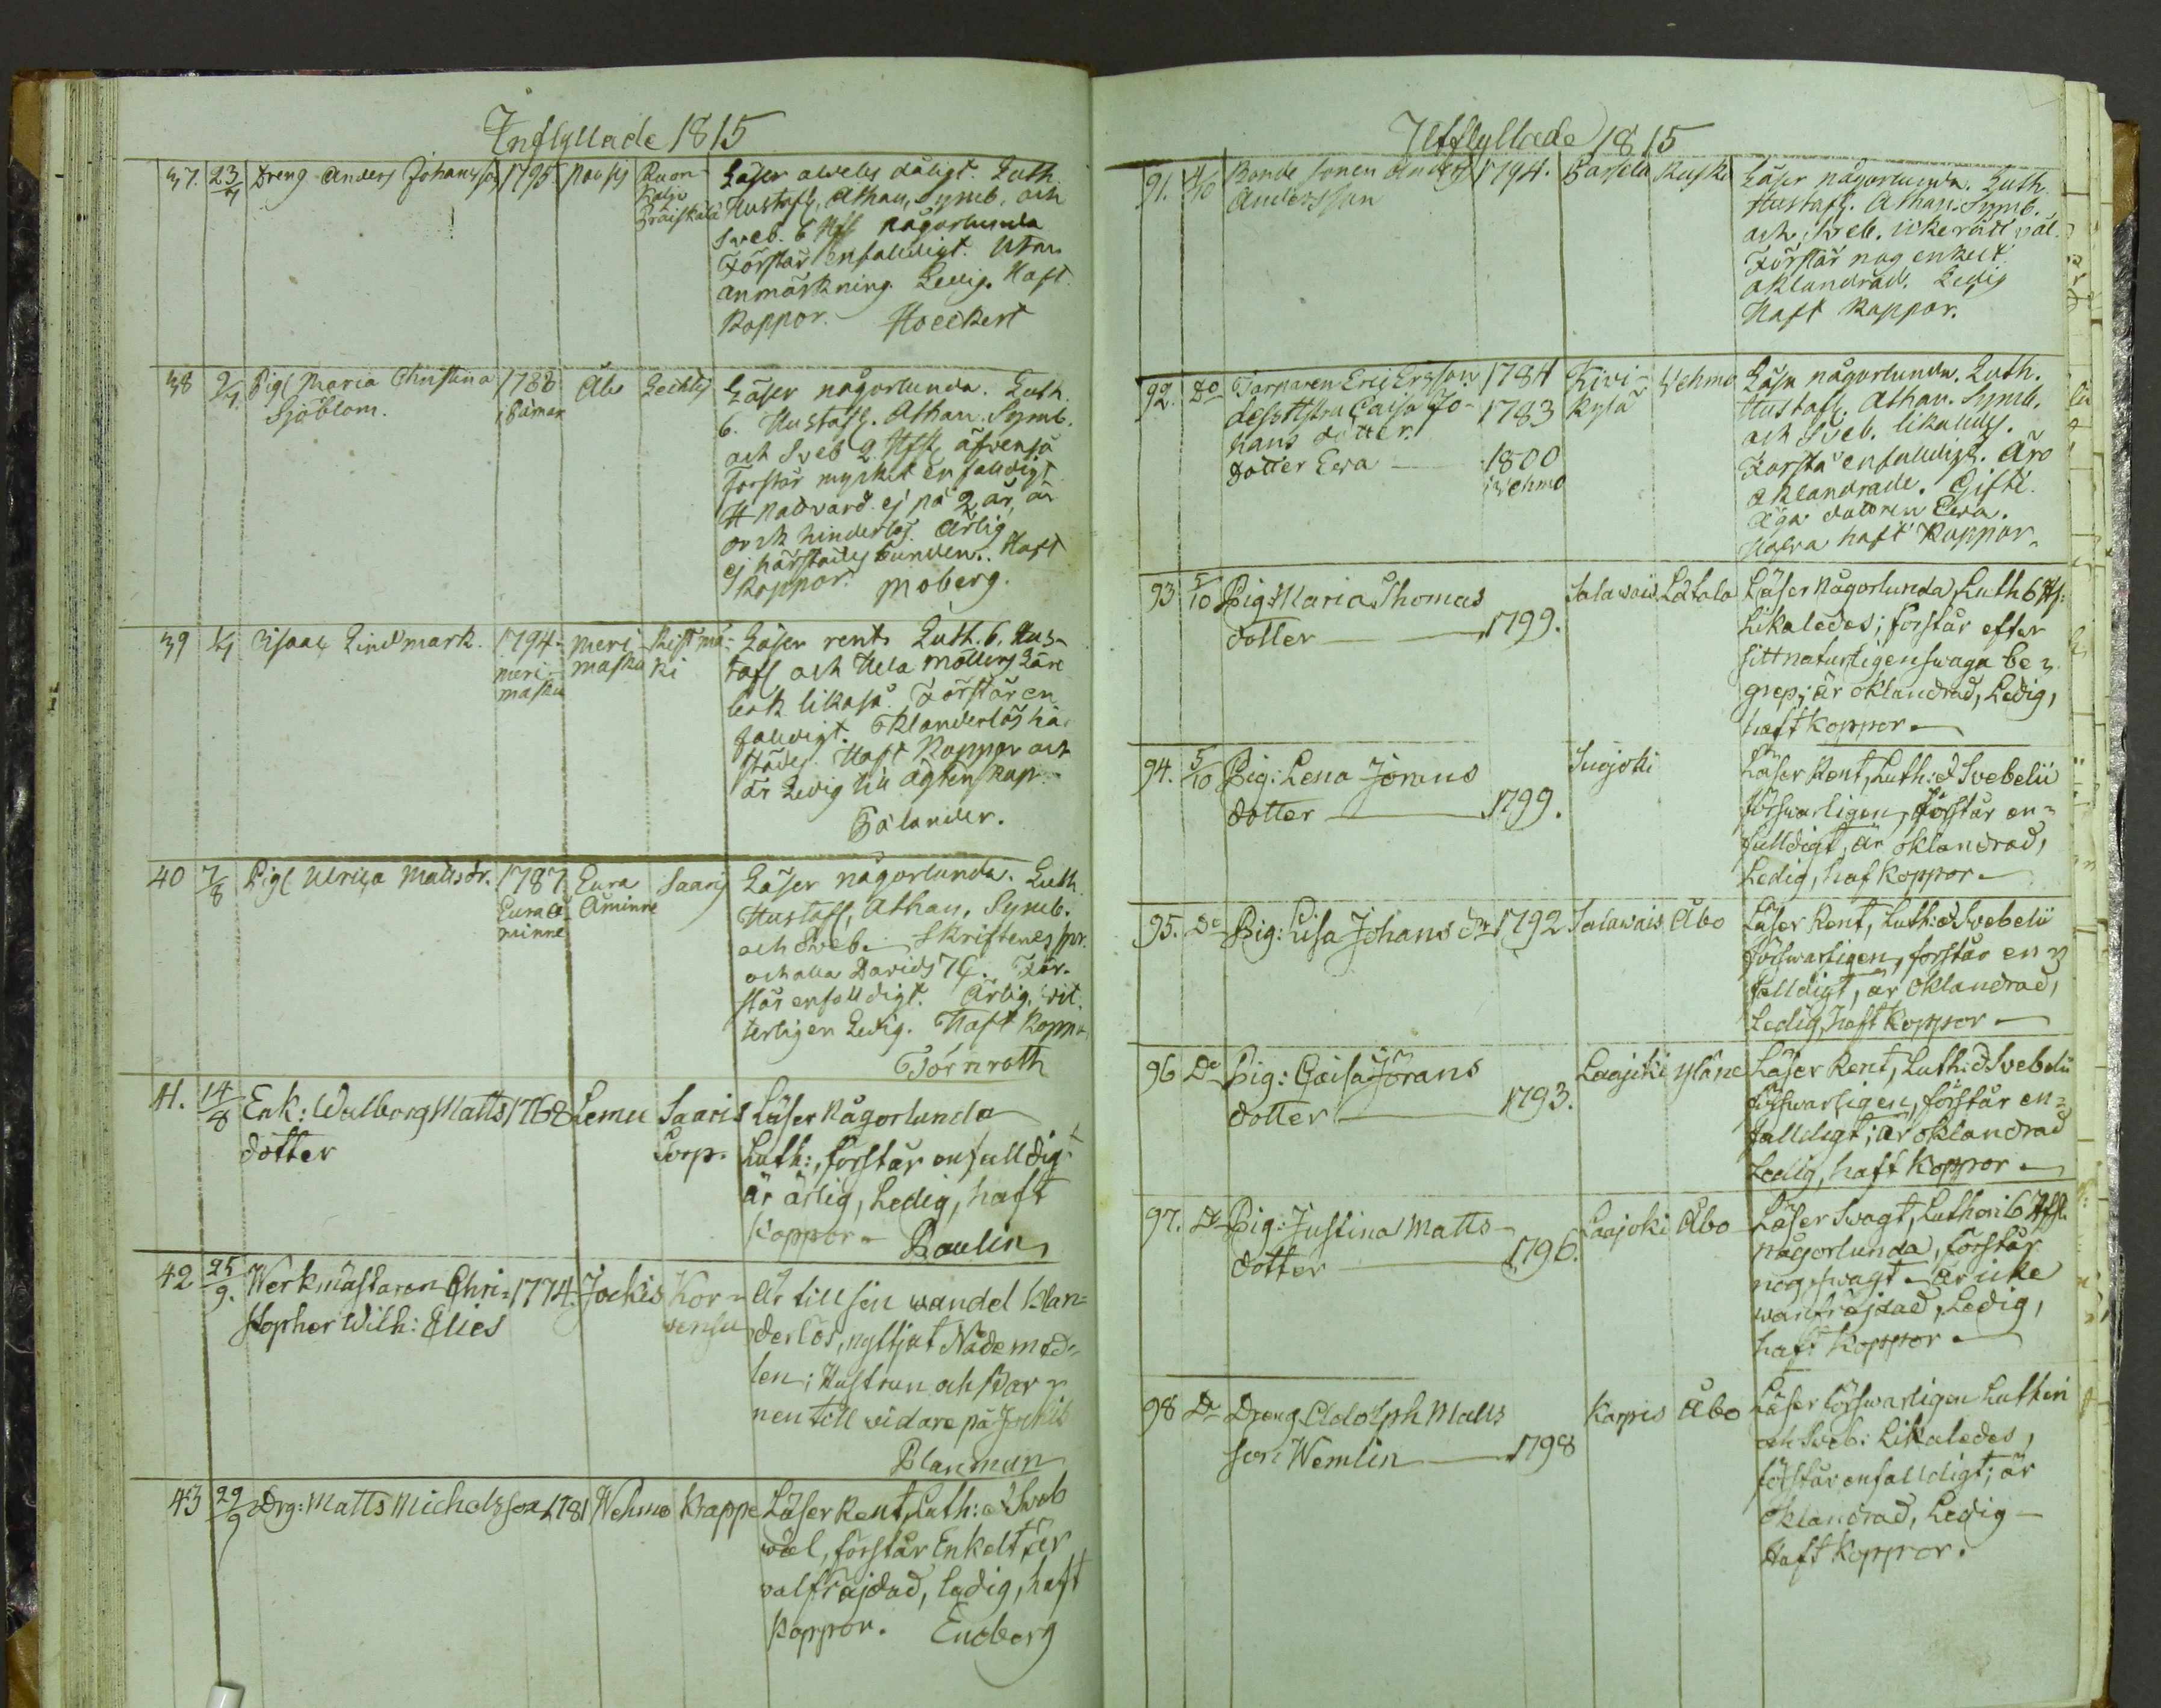 Inflyttade 1815
37. 23/4 Dreng Anders Johansson 1795. Nousis
Läser alvebs dåligt. Luth.
Hustafl, Athan, Symb. och
Sveb. 6 Hst någorlunda
Förstår enfalldigt. Utan
anmärkning Ledig. Haft
Koppor. Hoeckert
38 Pig: Maria Christina 1788 Åbo
Sjöblom.
Läser någorlunda. Luth.
6. Hustafl. Athan. Symb.
och Sveb 2 Hst äfvenså
Förstår mycket enfalldigt
H Nattvard ej på 2 år, är
och hinderlös. Ärlig
ej härstädes bunden. Haft
Koppor. Moberg.
39 Isaac Lindmark. 1794. Meri-
meri- masku
masku
Läser rent. Luth. 6. Hus-
tafl och Hela Möllers Läro
bok likaså. Förstår en-
falldigt. Klanderlös här
städes. Haft Koppor och
är Ledig till ägtenskap.
Tålander.
40 7/8 Pig: Ulrica Mattsdr. 1787. Eura Saaris
Euraå- Åminne
minne
Läser någorlunda. Luth.
Hustafl, Athan, Symb.
och Sveb. Skriftenes spr.
och alla Davids 7 . För-
står enfalldigt. Ärlig,
terligen Ledig. Haft Koppor
Törnroth
41. 14/8 Enk: Walborg Matts 1768 Lemu Saaris
dotter Torp.
Läser Någorlunda
Luth:, förstår enfalldigt
är ärlig, Ledig, haft
Koppor - Paulin
42 25/9. Werkmästaren Chri= 1774. Jockis Kor=
stopher Wilh: Elies
Är till sin wandel Klan=
derlös, nyttjat Nådemed=
len; Hustrun och Bar=
nen till vidare på Jockis
Blanman
43 29/9 Drg: Matts Michelsson 1781 Wehmo Nappe
Läser Rent, Luth: et Sveb
wäl, förstår Enkelt, är
valfräjdad, ledig, haft
Koppor. Eneberg
Utflyttade 1815
91. 4/10 Bonde sonen Anders 1794. Rusko
Andersson
Läser någorlunda. Luth
Hustafl. Athan. Symb.
och Sveb. icke rätt wäl.
Förstår nog enkelt.
oklandrad. Ledig
Haft Koppor.
92. Do Torparen Eric Ersson 1784 Kivi- Wehmo
dess Hstru Caisa Jo- 1783 kylä
hans dotter.
dotter Ewa — 1800
i Vehmo
Läsa någorlunda. Luth.
Hustafl. Athan. Symb.
och Sveb. likaledes.
Förstå enfalldigt. Äro
oklandrade. Gifte.
Äga dottren Ewa.
Hafva haft Koppor.
93 5/10 Pig: Maria Thomas
dotter — 1799. Salawais Letala
Läser Någorlunda, Luth 6 Hst:
Likaledes; förstår efter
sitt naturligen swaga be=
grep; är oklandrad, Ledig,
haft koppor —
94. 5/10 Pig: Lena Jörans
dotter — 1799. Suojoki
Läser Rent, Luth: et Svebelii
förswarligen, förstår en=
falldigt, är oklandrad,
Ledig, haf koppor —
95. Do Pig: Lisa Johans dr 1792 Salawais Åbo
Läser Rent, Luth: et Svebelii
förswarligen, förstår en=
falldigt, är oklandrad,
Ledig, haft Koppor —
96 Do Pig: Caisa Jörans
dotter — 1793. Laajoki Yläne
Läser Rent, Luth: et Svebelii
förswarligen, förstår en=
falldigt; är oklandrad
Ledig, haft Koppor —
97. Do Pig: Justina Matts-
dotter — 1796. Laajoki Åbo
Läser Swagt, Lutheri 6 Hst
någorlunda, förstår
nog swagt — är icke
wanfräjdad, Ledig,
haft Koppor —
98 Do Dreng Adolph Matts
son Wemlin — 1798 Karpis Åbo
Läser förswarligen Lutheri
och Sveb: Likaledes,
förstår enfalldigt; är
oklandrad, Ledig —
Haft Koppor.